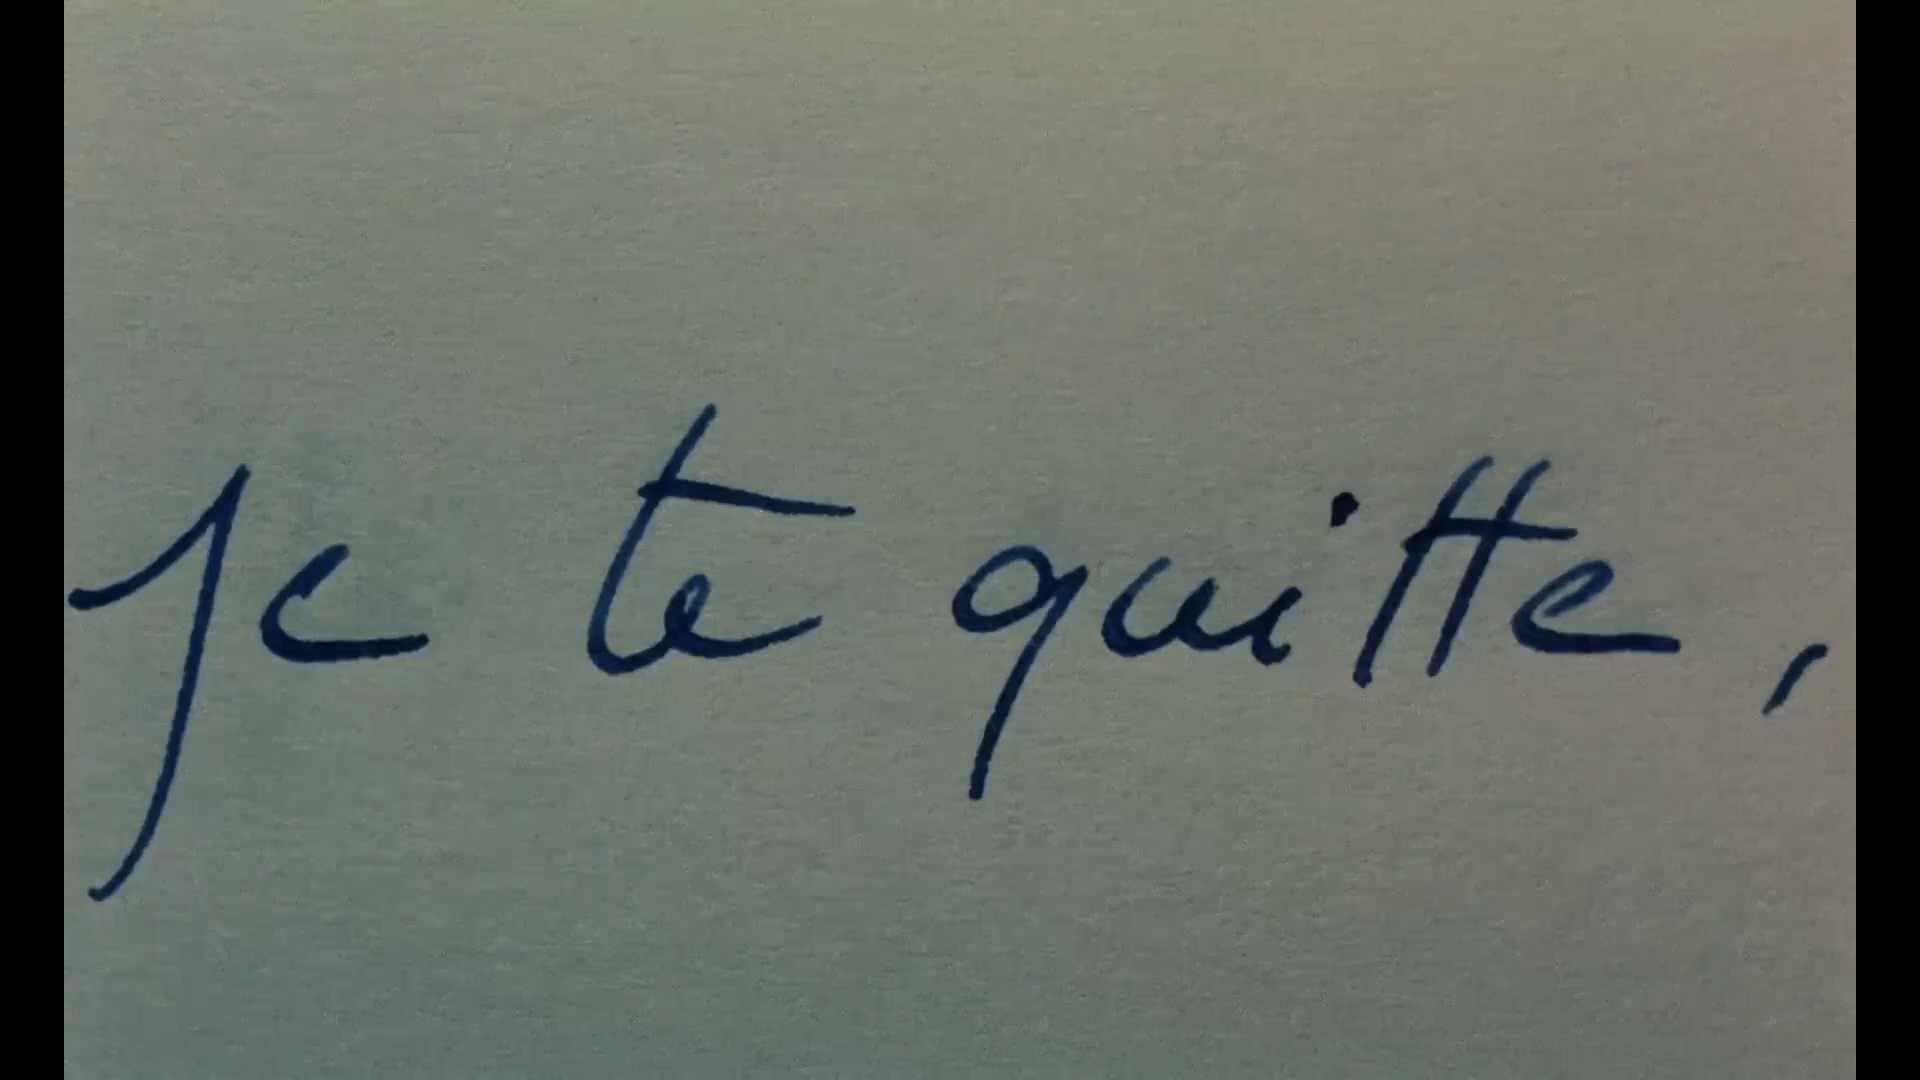 je te quitte,